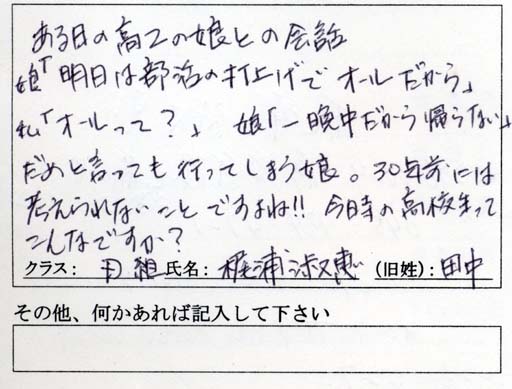 ある日の高2の娘との会話
娘「明日は部活の打上げでオールだから」
私「オールって?」 娘「一晩中だから帰らない」
だめと言っても行ってしまう娘。30年前には
考えられないことですよね!! 今日時の高校生って
こんなですか?
クラス: 組 氏名: 梶浦淑恵 (旧姓):田中
その他、何かあれば記入して下さい